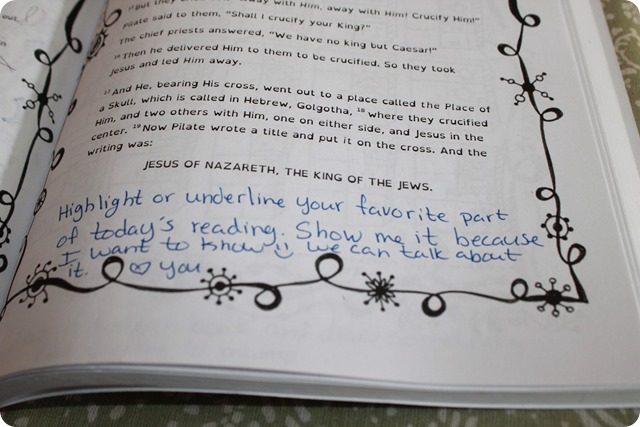 "But they cried out, "Away with Him, away with Him! Crucify Him!"
Pilate said to them, "Shall I crucify your King?"
The chief priests answered, "We have no king but Caesar!"
16 Then he delivered Him to them to be crucified. So they took
Jesus and led Him away.
17 And He, bearing His cross, went out to a place called the Place of
a Skull, which is called in Hebrew, Golgotha, 18 where they crucified
Him, and two others with Him, one on either side, and Jesus in the
center. 19 Now Pilate wrote a title and put it on the cross. And the
writing was:
JESUS OF NAZARETH, THE KING OF THE JEWS.
Highlight or underline your favorite part
of today's reading. Show me it because
I want to know we can talk about
it. ♡ you